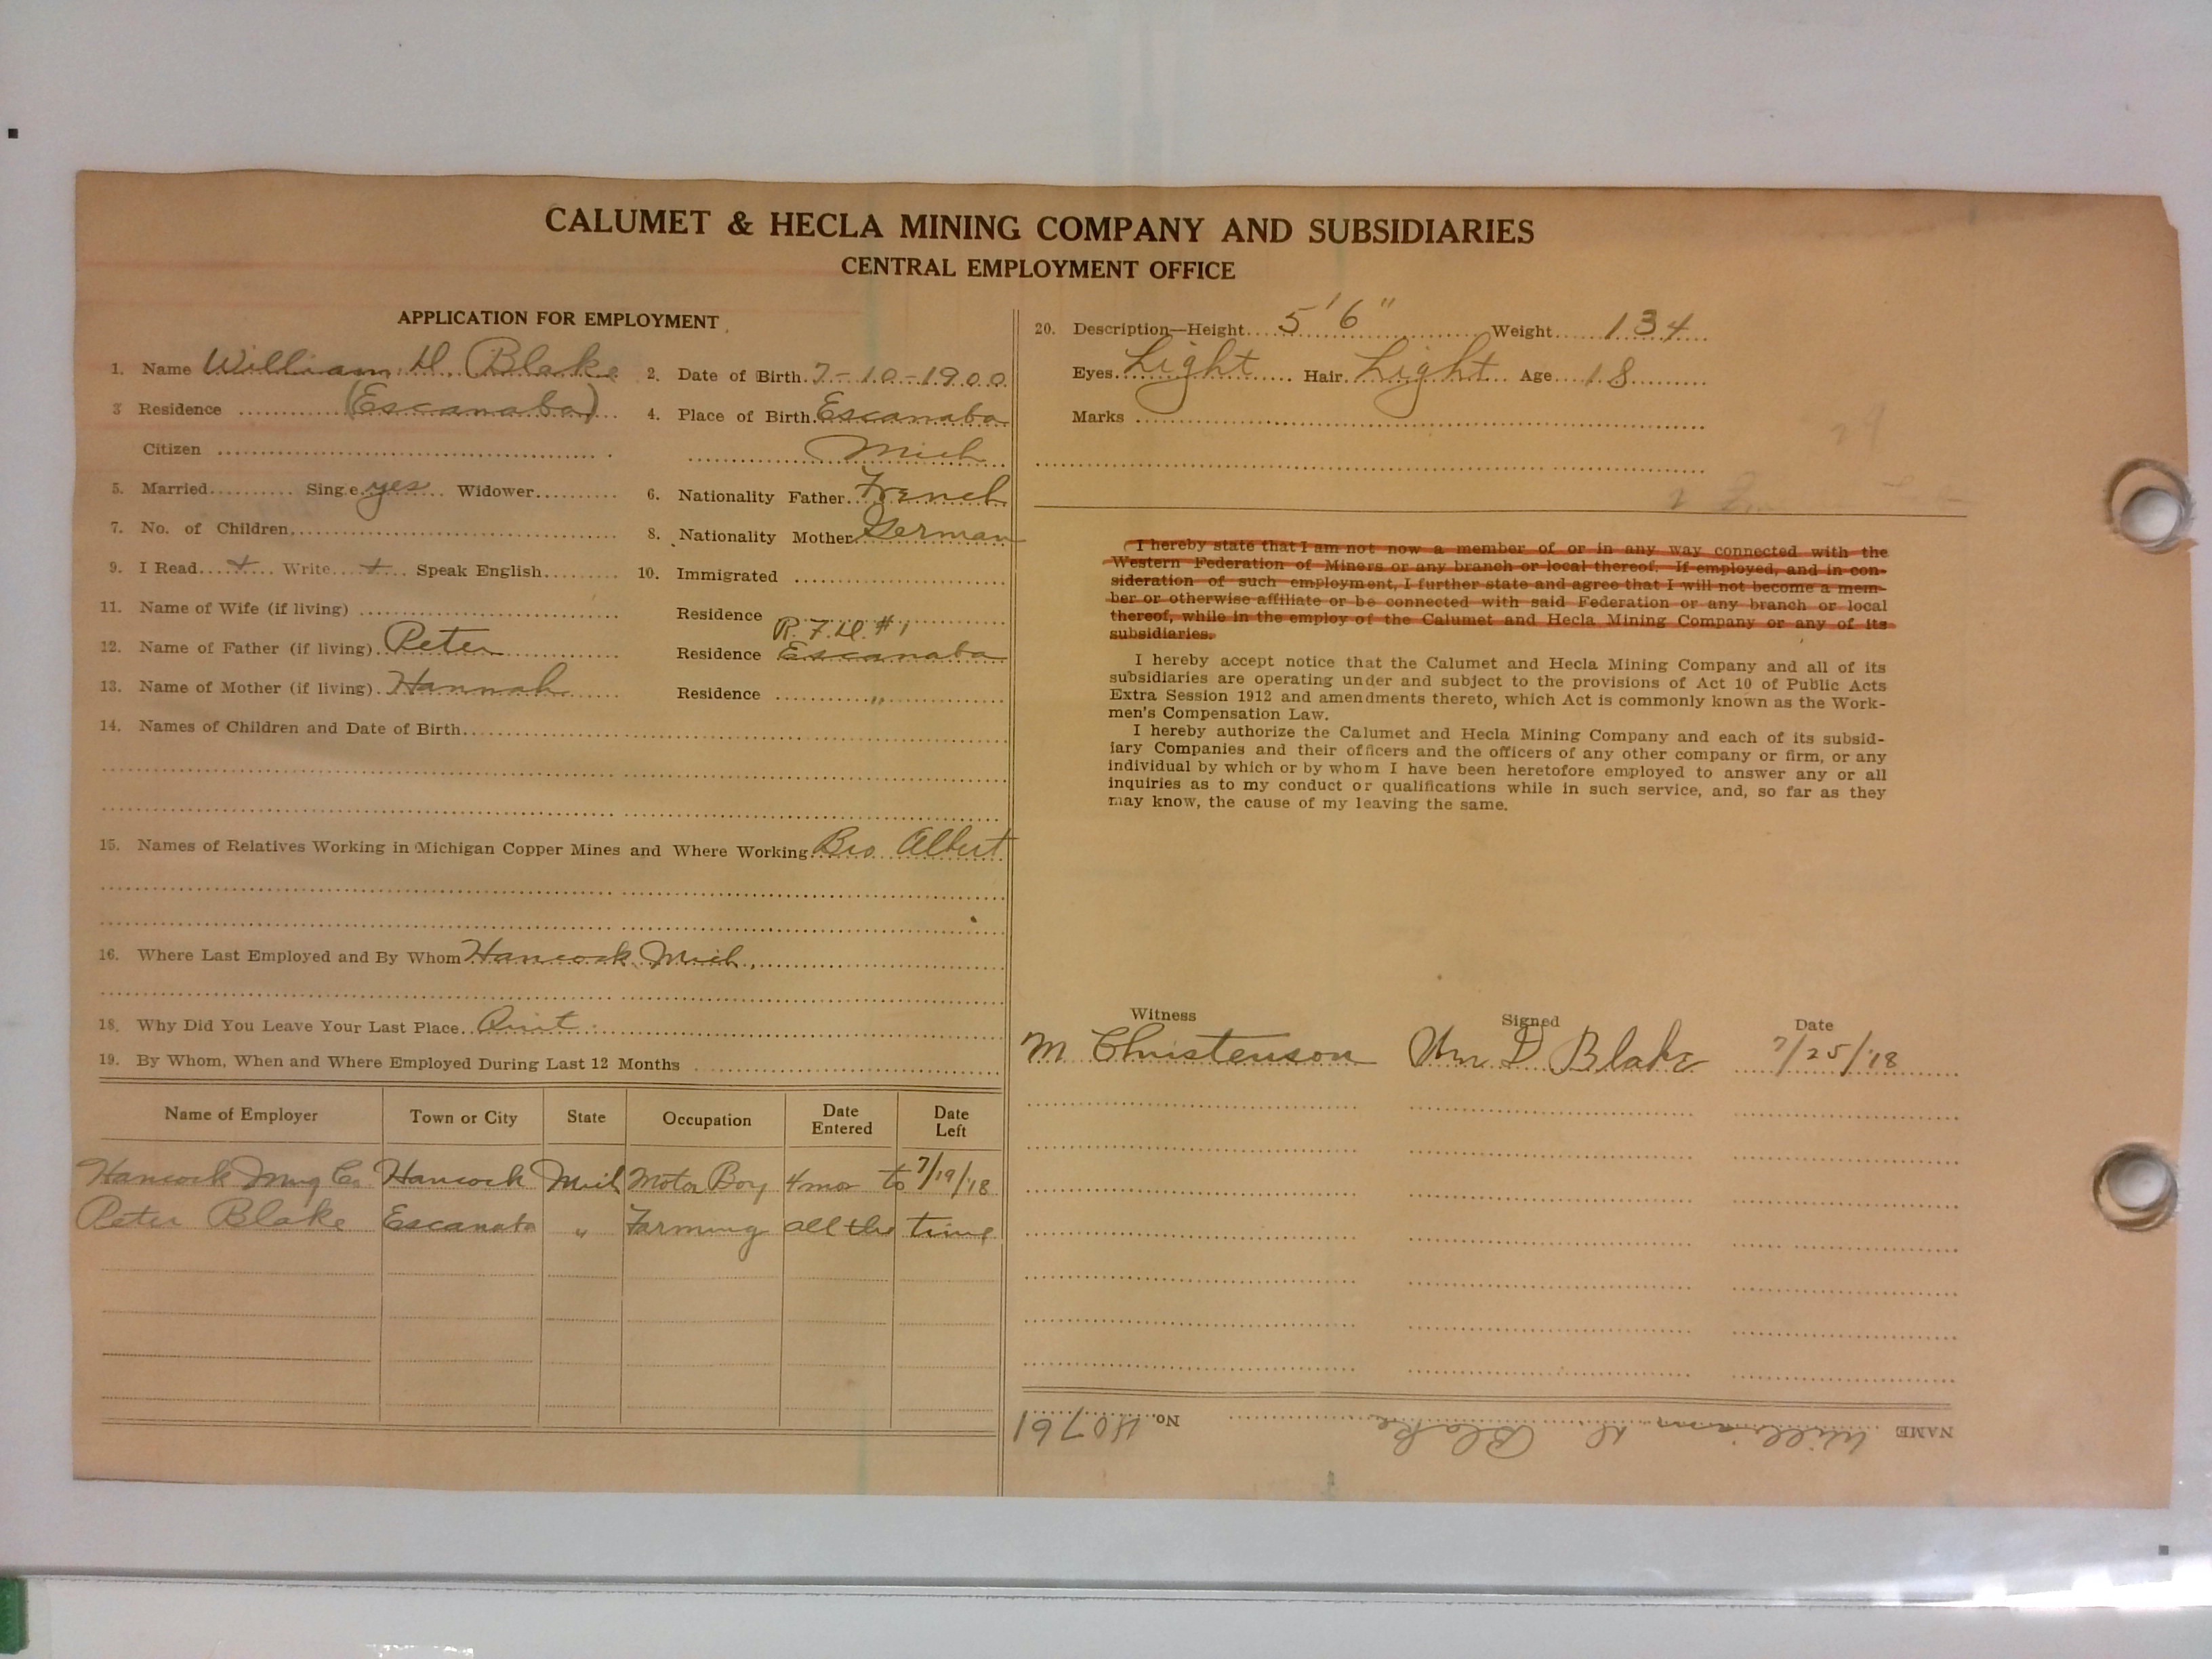 CALUMET & HECLA MINING COMPANY AND SUBSIDIARIES
CENTRAL EMPLOYMENT OFFICE
APPLICATION FOR EMPLOYMENT
1. Name William D. Blake 2. Date of Birth 7-10-1900
3 Residence (Escanaba) 4. Place of Birth Escanaba
Citizen Mich
5. Married Single yes Widower 6. Nationality Father French
7. No. of Children 8. Nationality Mother German
9. I Read + Write + Speak English 10. Immigrated
11. Name of Wife (if living) Residence
R.F.D. #1
12. Name of Father (if living) Peter Residence Escanaba
13. Name of Mother (if living) Hannah Residence "
14. Names of Children and Date of Birth
15. Names of Relatives Working in Michigan Copper Mines and Where Working Bro Albert
16. Where Last Employed and By Whom Hancock Mich.
18. Why Did You Leave Your Last Place Quit
19. By Whom, When and Where Employed During Last 12 Months
Name of Employer Town or City State Occupation Date Entered Date Left
Hancock Mng Co Hancock Mich Motor Boy 4 mos to 7/19/18
Peter Blake Escanaba " Farming all the time
20. Description—Height 5'6" Weight 134
Eyes Light Hair Light Age 18
Marks
I hereby state that I am not now a member of or in any way connected with the
Western Federation of Miners or any branch or local thereof. If employed, and in con-
sideration of such employment, I further state and agree that I will not become a mem-
ber or otherwise affiliate or be connected with said Federation or any branch or local
thereof, while in the employ of the Calumet and Hecla Mining Company or any of its
subsidiaries.
I hereby accept notice that the Calumet and Hecla Mining Company and all of its
subsidiaries are operating under and subject to the provisions of Act 10 of Public Acts
Extra Session 1912 and amendments thereto, which Act is commonly known as the Work-
men's Compensation Law.
I hereby authorize the Calumet and Hecla Mining Company and each of its subsid-
iary Companies and their officers and the officers of any other company or firm, or any
individual by which or by whom I have been heretofore employed to answer any or all
inquiries as to my conduct or qualifications while in such service, and, so far as they
may know, the cause of my leaving the same.
Witness Signed Date
M Christenson Wm D Blake 7/25/18
NAME William D. Blake No. 40761